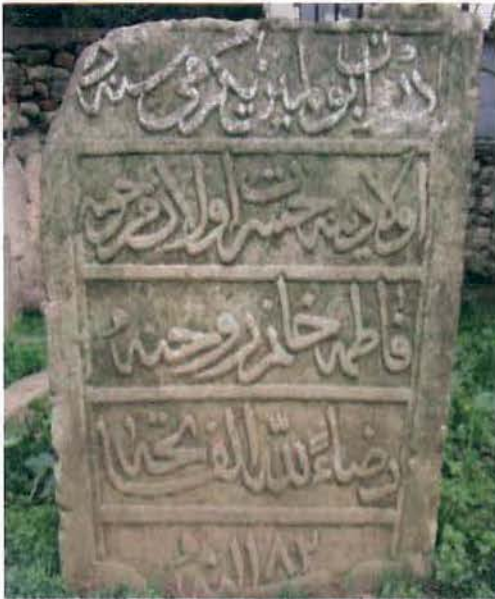 يكرمي سنه
اولادينه حسرت اولان مرحومه
فاطمه خانم روحنه
رضاء لله الفاتحه
سنه ١١٨٢